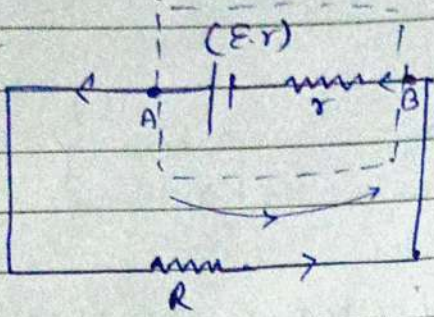 (Ɛ.r)
A
r
B
R